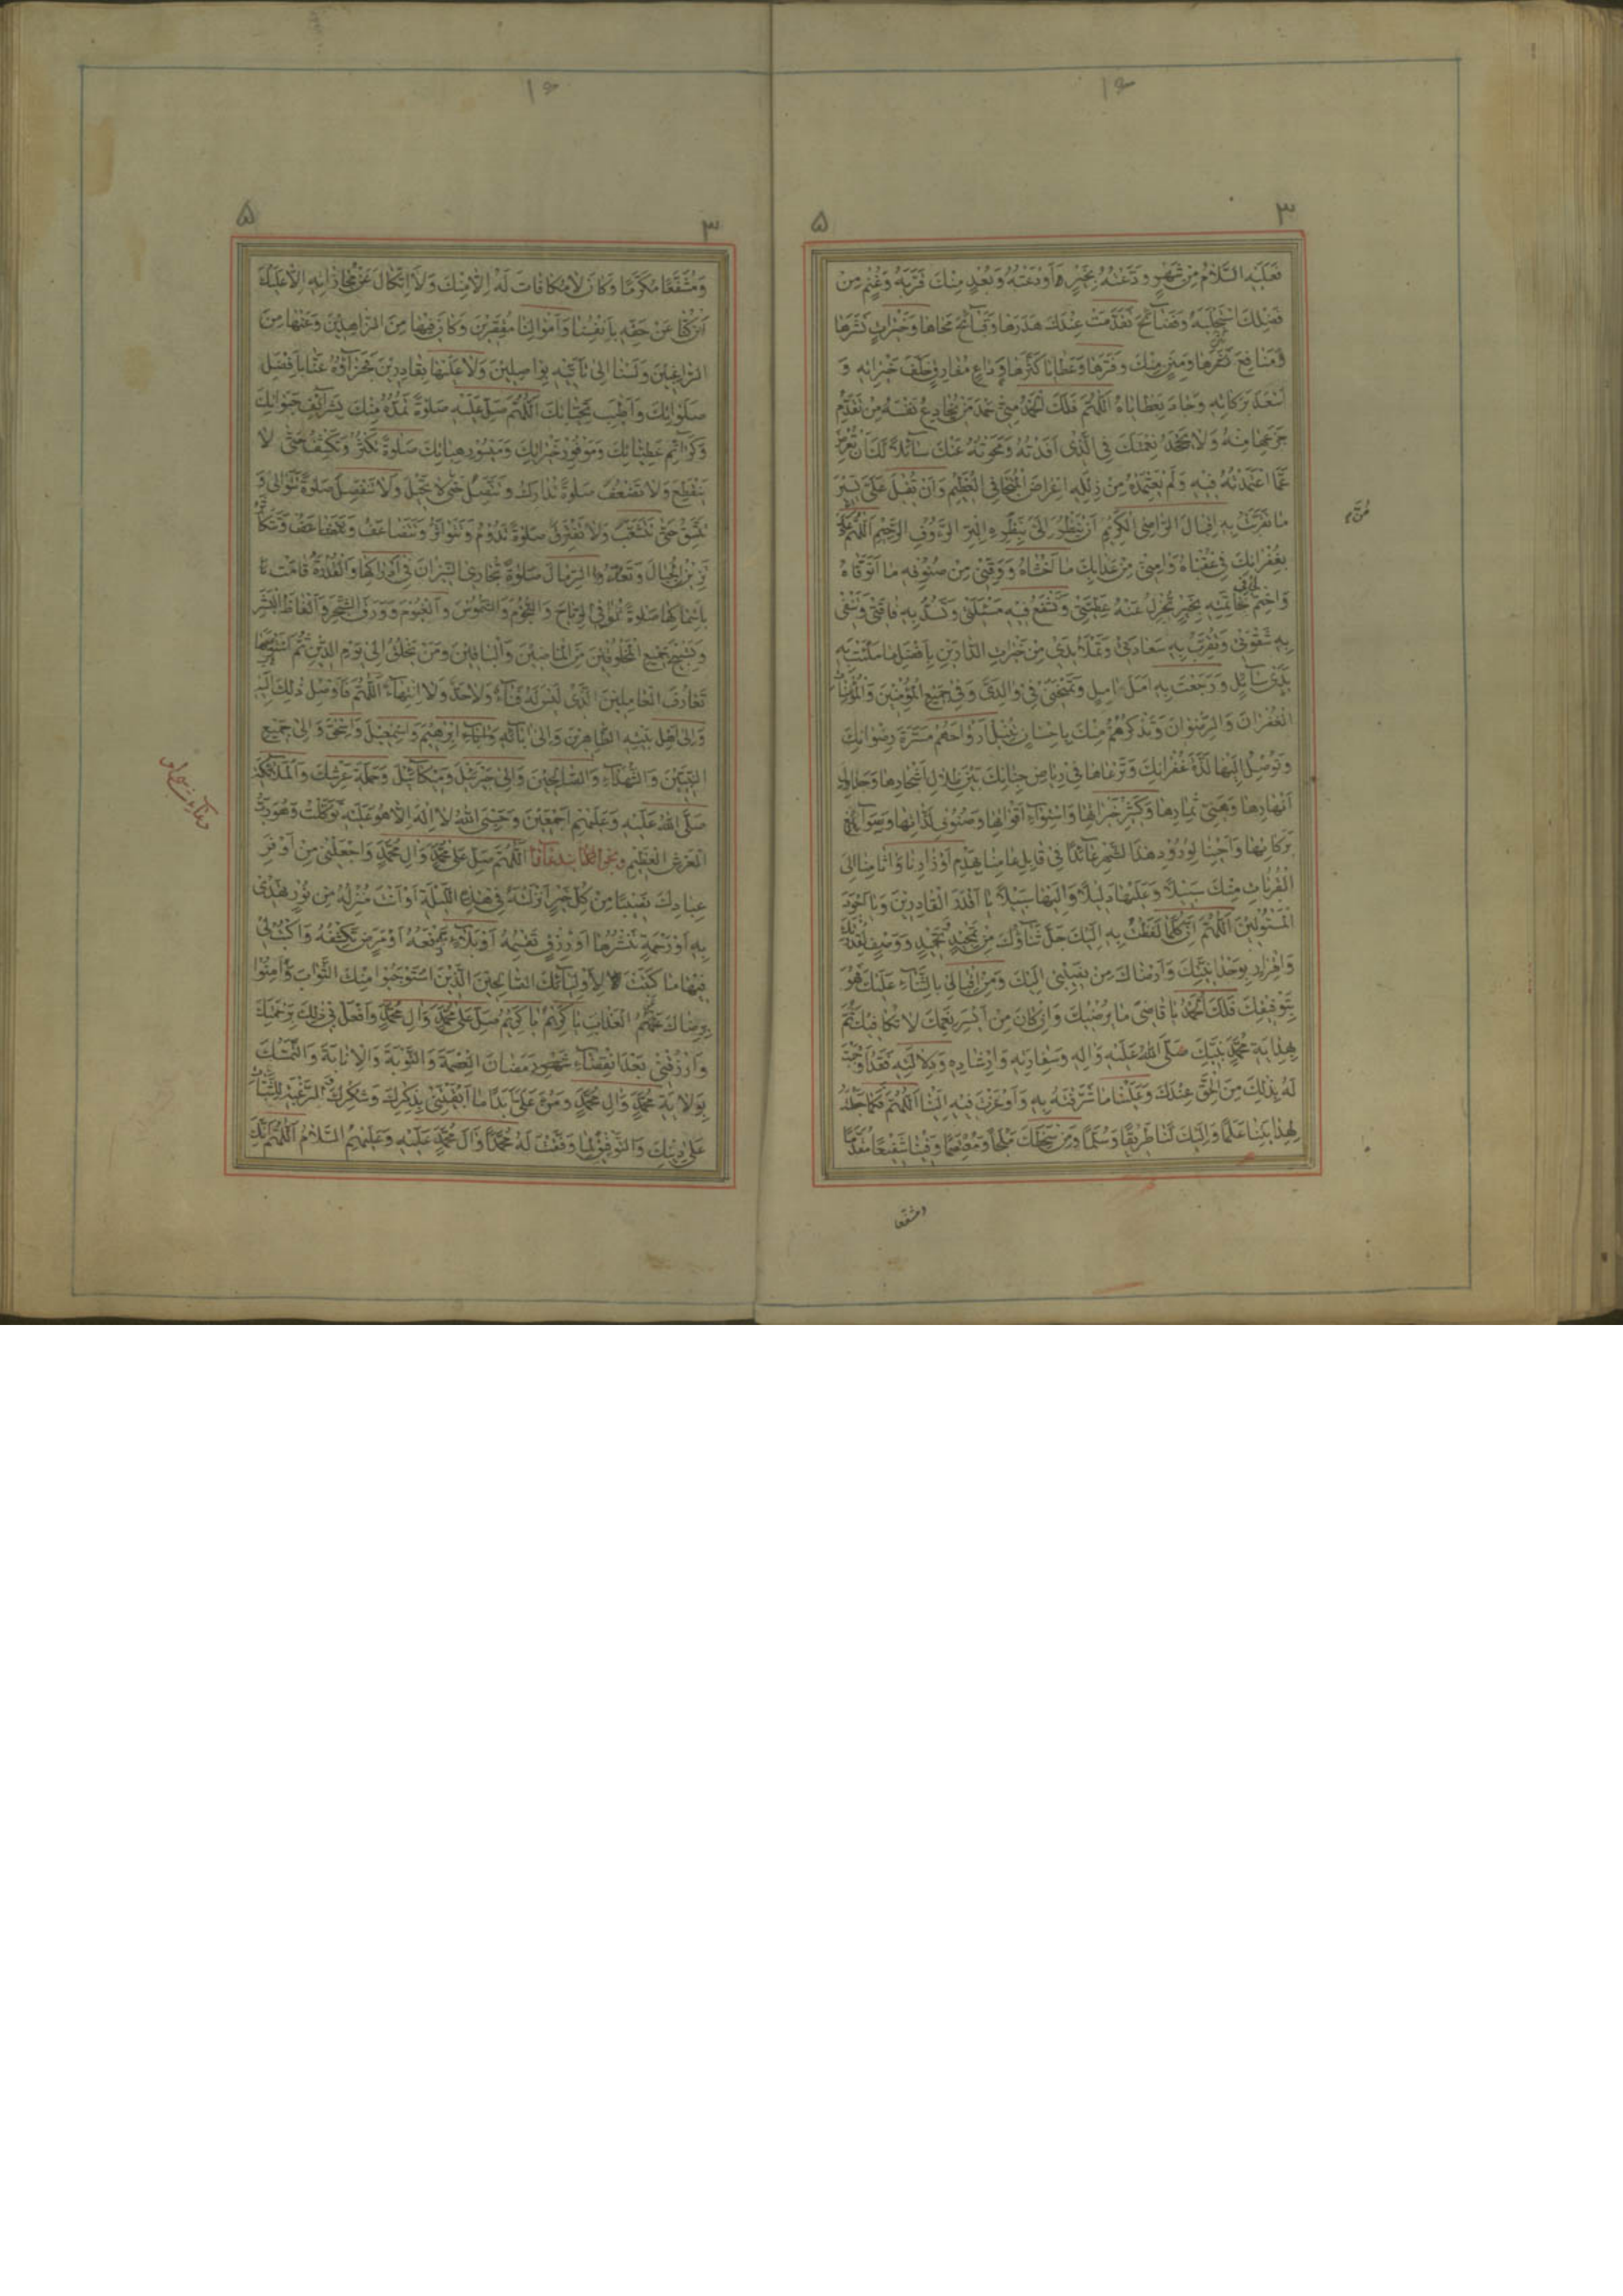 فَعَلَيْهِ السَّلَامُ مِنْ شَهْرٍ وَدَّعْتُهُ بِخَيْرٍ أَوْدَعْتُهُ وَبُعْدٍ مِنْكَ قَرَّبَهُ وَغُنْمٍ مِنْ
فَضْلِكَ اسْتَجْلَبَهُ وَفَضَائِحَ تَقَدَّمَتْ عِنْدَكَ هَدَرَهَا وَقَبَائِحَ مَحَاهَا وَخَيْرَاتٍ نَشَرَهَا
وَمَنَافِعَ نَثَرَهَا وَمِنَنٍ مِنْكَ وَفَّرَهَا وَعَطَايَا كَثَّرَهَا وَدَاعَ مُفَارِقٍ خَلَّفَ خَيْرَاتِهِ وَ
أَسْعَدَ بَرَكَاتِهِ وَجَادَ بِعَطَايَاهُ اَللَّهُمَّ فَلَكَ الْحَمْدُ مِنِّي حَمْدَ مَنْ لَا يُخَادِعُ نَفْسَهُ مِنْ تَقَدُّمِ
جَزَعِهَا مِنْهُ وَلَا يَجْحَدُ نِعْمَتَكَ فِي الَّذِي أَفَدْتَهُ وَمَحَوْتَهُ عَنْكَ سَائِلًا لَكَ أَنْ تُعْرِضَ
عَمَّا اعْتَمَدْتُهُ فِيهِ وَلَمْ يَعْتَمِدْهُ مِنْ زَلَلِهِ إِعْرَاضَ الْمُتَجَافِي الْعَظِيمِ وَأَنْ تُقْبِلَ عَلَى يَسِيرِ
مَا تَقَرَّبْتُ بِهِ إِقْبَالَ الرَّاضِي الْكَرِيمِ أَنْ يَنْظُرَ إِلَيَّ بِنَظْرَةِ الْبَرِّ الرَّؤُوفِ الرَّحِيمِ اَللَّهُمَّ
بِغُفْرَانِكَ فِي عُقْبَاهُ وَآمِنِّي مِنْ عَذَابِكَ مَا أَخْشَاهُ وَوَقِّنِي مِنْ صُنُوفِهِ مَا أَتَوَقَّاهُ
وَاخْتِمْ لِي فِي خَاتِمَتِهِ بِخَيْرٍ تُجْزِلُ عَنْهُ عَطِيَّتِي وَتُشَفِّعُ فِيهِ مَسْأَلَتِي وَتَسُدُّ بِهِ فَاقَتِي وَتَنْفِي
بِهِ شِقْوَتِي وَتُقَرِّبُ بِهِ سَعَادَتِي وَتَمْلَأُ يَدِي مِنْ خَيْرَاتِ الدَّارَيْنِ بِأَفْضَلِ مَا مَلَأْتَ بِهِ
يَدَيْ سَائِلٍ وَرَجَعْتَ بِهِ أَمَلَ آمِلٍ وَتَمْنَحَنِي فِي وَالِدَيَّ وَفِي جَمِيعِ الْمُؤْمِنِينَ وَالْمُؤْمِنَاتِ
الْغُفْرَانَ وَالرِّضْوَانَ وَتَذْكُرَهُمْ مِنْكَ بِإِحْسَانٍ تُنِيلُ أَرْوَاحَهُمْ مَسَرَّةَ رِضْوَانِكَ
وَتُوصِلُ إِلَيْهَا لَذَّةَ غُفْرَانِكَ وَتَرْعَاهَا فِي رِيَاضِ جِنَانِكَ بَيْنَ ظِلَالِ أَشْجَارِهَا وَجَدَاوِلِ
أَنْهَارِهَا وَهَنِيءِ ثِمَارِهَا وَكَثِيرِ خَيْرَاتِهَا وَاسْتِوَاءِ أَقْوَاتِهَا وَصُنُوفِ لَذَّاتِهَا وَسَوَابِغِ
بَرَكَاتِهَا وَأَحْيِنَا لِوُرُودِ هَذَا الشَّهْرِ عَائِدًا فِي قَابِلِ عَامِنَا بِهَدْمِ أَوْزَارِنَا وَآثَامِنَا إِلَى
الْقُرُبَاتِ مِنْكَ سَبِيلًا وَعَلَيْهَا دَلِيلًا وَإِلَيْهَا سَبِيلًا يَا أَقْدَرَ الْقَادِرِينَ وَيَا أَجْوَدَ
الْمَسْئُولِينَ اَللَّهُمَّ إِنَّ كُلَّمَا لَفَظْتُ بِهِ إِلَيْكَ جَلَّ ثَنَاؤُكَ مِنْ تَمْجِيدٍ وَتَحْمِيدٍ وَوَصْفٍ لِقُدْرَتِكَ
وَإِقْرَارٍ بِوَحْدَانِيَّتِكَ وَإِرْضَاكَ مِنْ نَفْسِي إِلَيْكَ وَمِنْ إِقْبَالِي بِالثَّنَاءِ عَلَيْكَ فَهُوَ
بِتَوْفِيقِكَ فَلَكَ الْحَمْدُ يَا قَاضِيَ مَا يُرْضِيكَ وَإِنْ كَانَ مِنْ أَيْسَرِ نِعَمِكَ لَا نُكَافِيكَ ثُمَّ
بِهِدَايَةِ مُحَمَّدٍ نَبِيِّكَ صَلَّى اللهُ عَلَيْهِ وَآلِهِ وَسِفَارَتِهِ وَإِرْشَادِهِ وَدِلَالَتِهِ فَقَدْ أَوْجَبْتَ
لَهُ بِذَلِكَ مِنَ الْحَقِّ عِنْدَكَ وَعَلَيْنَا مَا شَرَّفْتَهُ بِهِ وَأَوْعَزْتَ فِيهِ إِلَيْنَا اَللَّهُمَّ فَكَمَا جَعَلْتَهُ
لِهِدَايَتِنَا عَلَمًا وَإِلَيْكَ لَنَا طَرِيقًا وَسُلَّمًا وَمِنْ سَخَطِكَ مَلْجَأً وَمُعْتَصَمًا وَفِينَا شَفِيعًا مُقَدَّمًا
وَمُشَفَّعًا
وَمُشَفَّعًا مُكَرَّمًا وَكَانَ لَا مُكَافَاتَ لَهُ إِلَّا مِنْكَ وَلَا اتِّكَالَ عَنْ مُجَازَاتِهِ إِلَّا عَلَيْكَ
إِنْ كُنَّا عَنْ حَقِّهِ بِأَنْفُسِنَا وَأَمْوَالِنَا مُقَصِّرِينَ وَكَانَ فِيهَا مِنَ الزَّاهِدِينَ وَعَنْهَا مِنَ
الرَّاغِبِينَ وَلَسْنَا إِلَى تَأْتِيهِ بِوَاصِلِينَ وَلَا عَلَيْهَا بِقَادِرِينَ فَجَزَاؤُهُ عَنَّا بِأَفْضَلِ
صَلَوَاتِكَ وَأَطْيَبِ تَحِيَّاتِكَ اَللَّهُمَّ صَلِّ عَلَيْهِ صَلَوةً تَمُدُّهُ مِنْكَ بِشَرَائِفِ حَبَوَاتِكَ
وَكَرَائِمِ عَطِيَّاتِكَ وَمَوْفُورِ خَيْرَاتِكَ وَمَيْسُورِ هِبَاتِكَ صَلَوةً تَكْثُرُ وَتَكْثُفُ حَتَّى لَا
يَنْقَطِعُ وَلَا تَضْعُفُ صَلَوةً تَتَدَارَكُ وَتَتَّصِلُ حَتَّى لَا تَخْتَلَّ وَلَا تَنْفَصِلُ صَلَوةً تَتَوَالَى وَ
تَتَّسِقُ حَتَّى تَتَشَعَّبَ وَلَا تَفْتَرِقُ صَلَوةً تَدُومُ وَتَتَوَاتَرُ وَتَتَضَاعَفُ
تَزِنُ الْجِبَالَ وَتُعَادُّ الرِّمَالَ صَلَوةً تُجَارِي النَّيِّرَاتِ فِي أَفْلَاكِهَا وَالْقُدْرَةُ قَامَتْ
بِإِسْمَاكِهَا صَلَوةً تُوَافِي الرِّيَاحَ وَالنُّجُومَ وَالشُّمُوسَ وَالْغُيُومَ وَوَرَقَ الشَّجَرِ وَأَلْفَاظَ الْبَشَرِ
وَتَسْبِيحَ جَمِيعِ الْمَخْلُوقِينَ مِنَ الْمَاضِينَ وَالْبَاقِينَ وَمَنْ يُخْلَقُ إِلَى يَوْمِ الدِّينِ ثُمَّ
تَعَارُفَ الْعَالَمِينَ الَّذِي لَيْسَ لَهُ فَنَاءٌ وَلَا حَدٌّ وَلَا انْتِهَاءٌ اَللَّهُمَّ فَأَوْصِلْ ذَلِكَ إِلَيْهِ
وَإِلَى أَهْلِ بَيْتِهِ الطَّاهِرِينَ وَإِلَى آبَائِهِ وَآبَاءِ إِبْرَاهِيمَ وَإِسْمَعِيلَ وَإِسْحَقَ وَإِلَى جَمِيعِ
النَّبِيِّينَ وَالشُّهَدَاءِ وَالصَّالِحِينَ وَإِلَى جَبْرَئِيلَ وَمِيكَائِيلَ وَحَمَلَةِ عَرْشِكَ وَالْمَلَائِكَةِ
صَلَّى اللهُ عَلَيْهِ وَعَلَيْهِمْ أَجْمَعِينَ وَحَسْبِيَ اللهُ لَا إِلَهَ إِلَّا هُوَ عَلَيْهِ تَوَكَّلْتُ وَهُوَ رَبُّ
الْعَرْشِ الْعَظِيمِ اَللَّهُمَّ صَلِّ عَلَى مُحَمَّدٍ وَآلِ مُحَمَّدٍ وَاجْعَلْنِي مِنْ أَوْفَرِ
عِبَادِكَ نَصِيبًا مِنْ كُلِّ خَيْرٍ أَنْزَلْتَهُ فِي هَذِهِ اللَّيْلَةِ أَوْ أَنْتَ مُنْزِلُهُ مِنْ نُورٍ تَهْدِي
بِهِ أَوْ رَحْمَةٍ تَنْشُرُهَا أَوْ رِزْقٍ تَقْسِمُهُ أَوْ بَلَاءٍ تَدْفَعُهُ أَوْ مَرَضٍ تَكْشِفُهُ وَاكْتُبْ لِي
فِيهَا مَا كَتَبْتَ لِأَوْلِيَائِكَ الصَّالِحِينَ الَّذِينَ اسْتَوْجَبُوا مِنْكَ الثَّوَابَ وَآمِنُوا
بِرِضَاكَ عَنْهُمُ الْعَذَابَ يَا كَرِيمُ يَا كَرِيمُ صَلِّ عَلَى مُحَمَّدٍ وَآلِ مُحَمَّدٍ وَافْعَلْ بِي ذَلِكَ بِرَحْمَتِكَ
وَارْزُقْنِي بَعْدَ انْقِضَاءِ شَهْرِ رَمَضَانَ الْعِصْمَةَ وَالتَّوْبَةَ وَالْإِنَابَةَ وَالتَّمَسُّكَ
بِوِلَايَةِ مُحَمَّدٍ وَآلِ مُحَمَّدٍ وَمُنَّ عَلَيَّ أَبَدًا مَا أَبْقَيْتَنِي بِذِكْرِكَ وَشُكْرِكَ وَالرَّغْبَةِ لِلثَّبَاتِ
عَلَى دِينِكَ وَالتَّوْفِيقِ لِمَا وَفَّقْتَ لَهُ مُحَمَّدًا وَآلَ مُحَمَّدٍ عَلَيْهِ وَعَلَيْهِمُ السَّلَامُ اَللَّهُمَّ إِنَّكَ